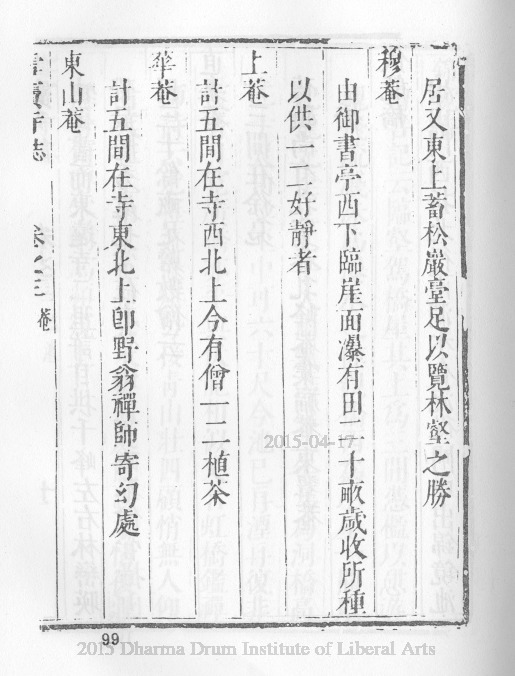 居又東上蓄松巖臺足以覽林壑之勝
穆菴
由御書亭西下臨崖面瀑有田二十畝歲收所種
以供一二好靜者
上菴
計五間在寺西北上今有僧一二植茶
華菴
計五間在寺東北上卽野翁禪師寄幻處
東山菴
雪竇寺志 卷之三 菴
2015-04-17
99
2015 Dharma Drum Institute of Liberal Arts